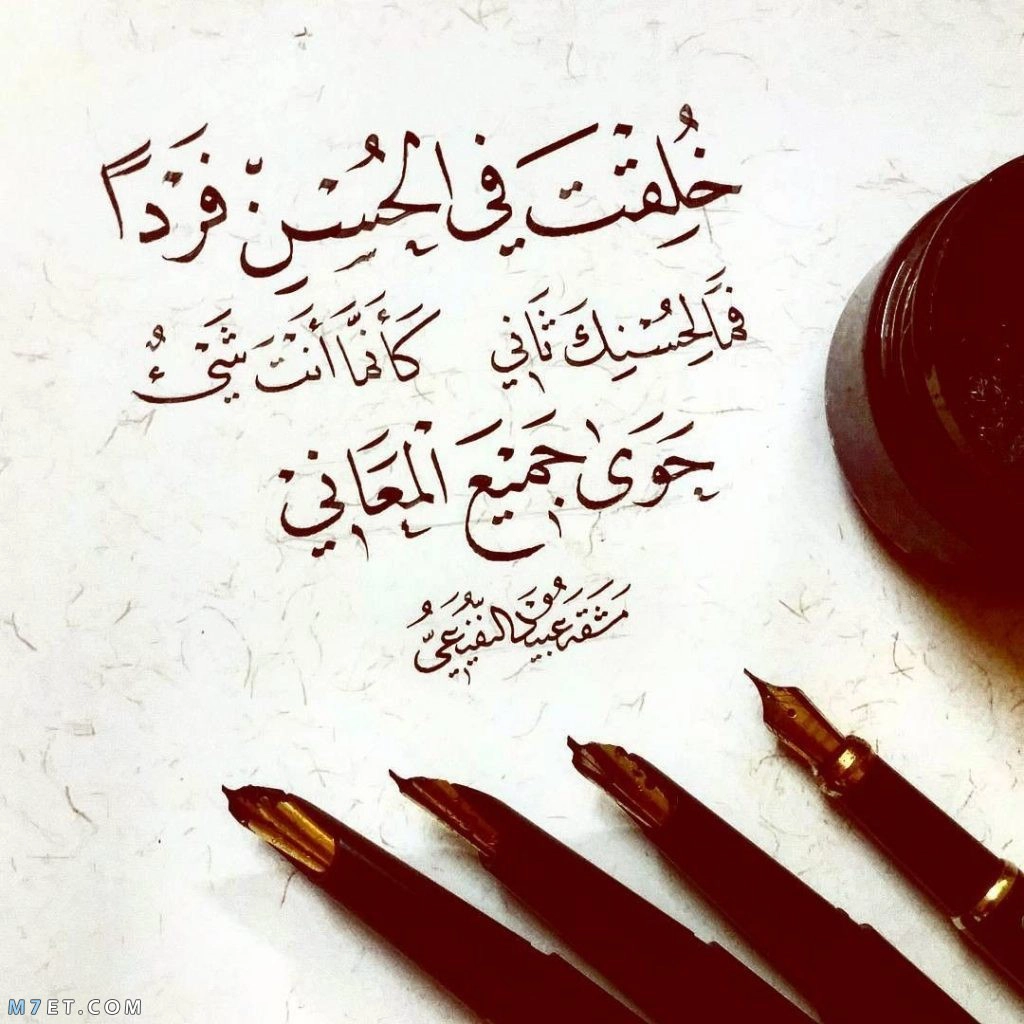 خُلِقْتَ في الحُسْنِ فَرْداً
فَمَا لِحُسْنِكَ ثَاني كَأَنَّمَا أَنْتَ شَيْءٌ
حَوَى جَمِيْعَ الْمَعَانِيْ
مَشَقَهُ عبيدة النفيعي
M7ET.COM